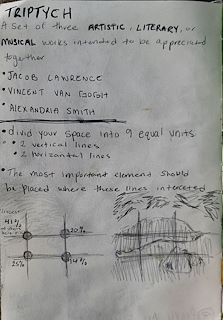 TRIPTYCH
A set of three ARTISTIC, LITERARY, or
MUSICAL works intended to be appreciated
together
• JACOB LAWRENCE
• VINCENT VAN
• ALEXANDRIA SMITH
• divid your space into 9 equal units
• 2 vertical lines
• 2 horizantal lines
• The most important element should
be placed where these lines interceted
41%
20%
25%
14%